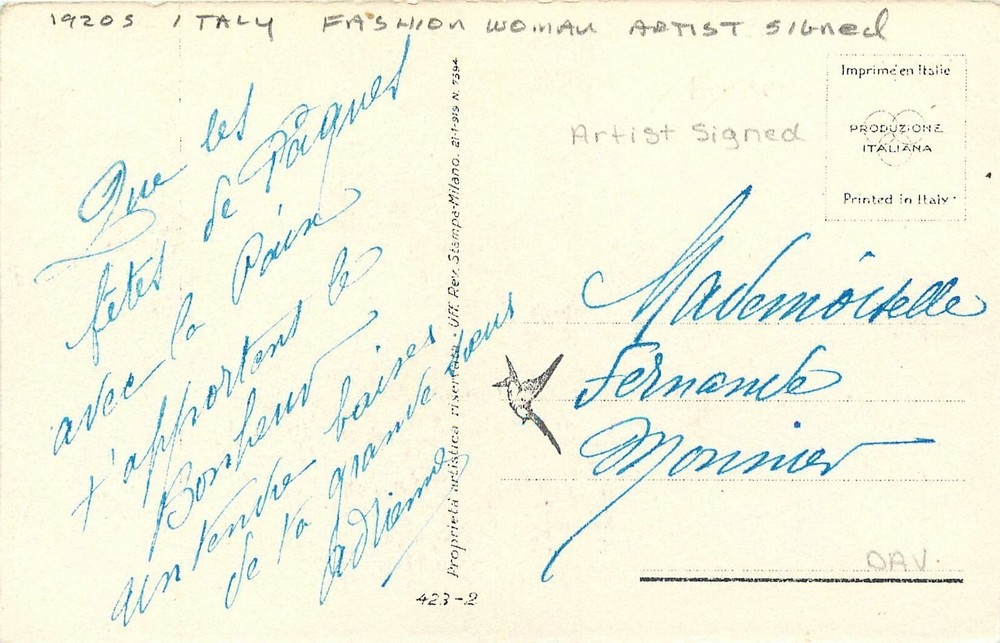 1920S ITALY FASHION WOMAN ARTIST SIGNED
Que les
fêtes de Pâques
avec la Paix
t'apportent le
Bonheur
un tendre baiser
de ta grande soeur
Adrienne
Proprietà artistica riservata - Uff. Rev. Stampa-Milano. 21-1-919 N. 7394
423-2
Artist Signed
Imprimé en Italie
PRODUZIONE
ITALIANA
Printed in Italy
Mademoiselle
Fernande
Monnier
DAV.